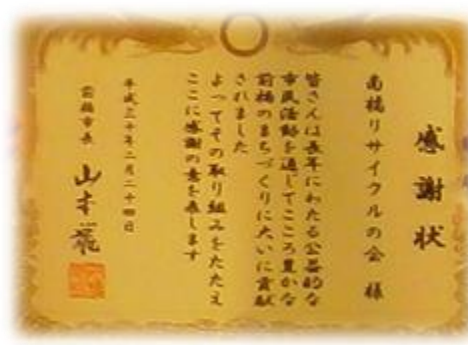 感謝状
南橘リサイクルの会 様
皆さんは長年にわたる公益的な
市民活動を通じてこころ豊かな
前橋のまちづくりに大いに貢献
されました
よってその取り組みをたたえ
ここに感謝の意を表します
平成三十年二月二十四日
前橋市長 山本龍